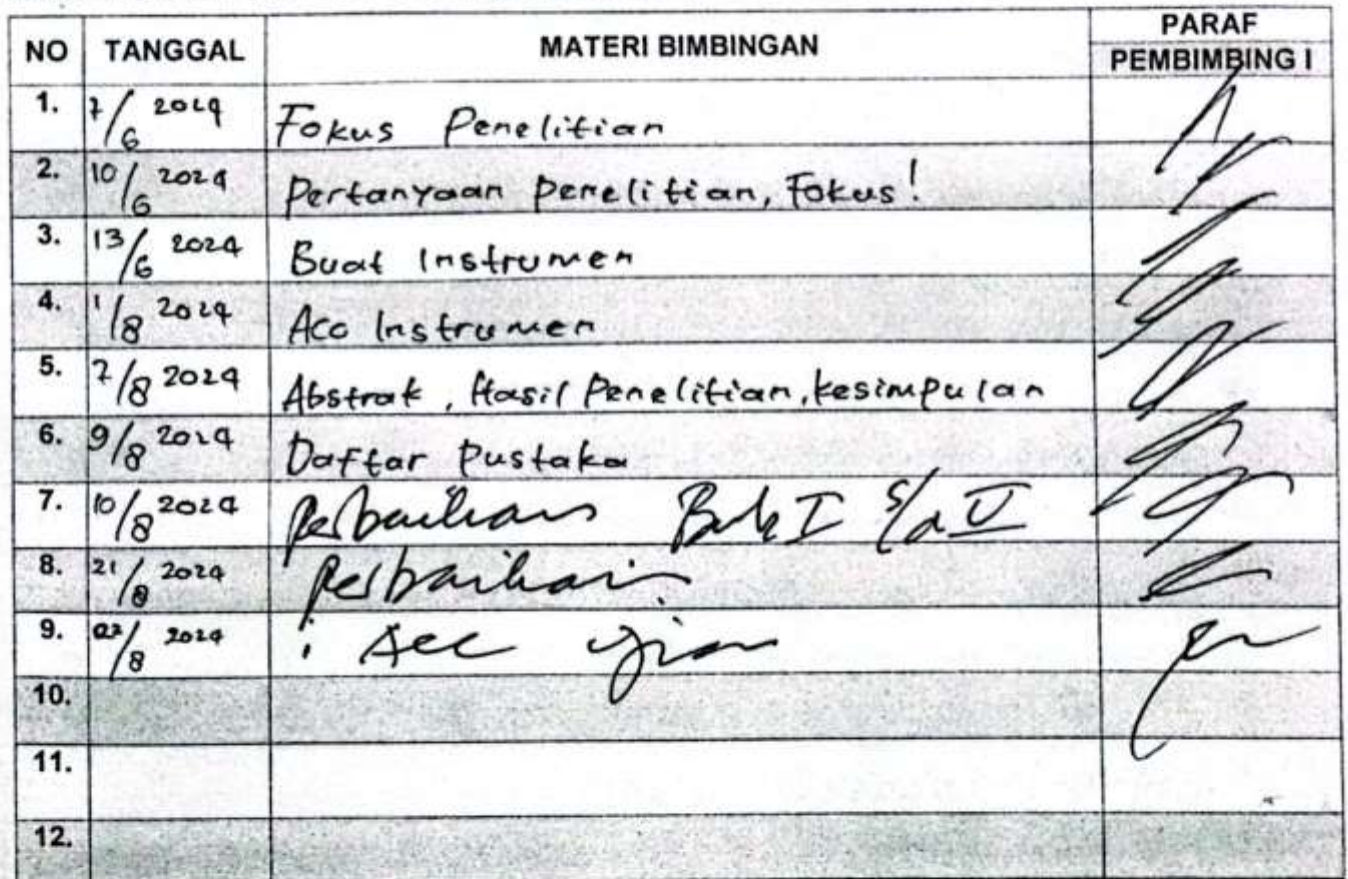 NO TANGGAL MATERI BIMBINGAN PARAF
PEMBIMBING I
1. 7/6 2024 Fokus Penelitian
2. 10/6 2024 Pertanyaan penelitian, Fokus!
3. 13/6 2024 Buat Instrumen
4. 1/8 2024 Acc Instrumen
5. 7/8 2024 Abstrak, Hasil Penelitian, kesimpulan
6. 9/8 2024 Daftar Pustaka
7. 10/8 2024 perbaikan Bab I s/d V
8. 21/8 2024 perbaikan
9. 22/8 2024 Acc ujian
10.
11.
12.